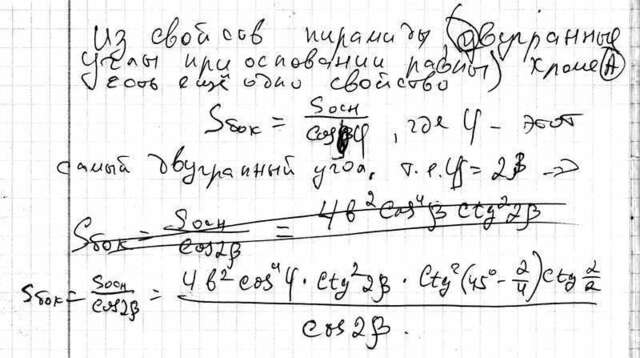 Из свойств пирамиды (двугранные
углы при основании равны) кроме (А)
есть ещё одно свойство
Sбок = Sосн / cosφ, где φ - этот
самый двугранный угол, т.е. φ = 2β ⇒
Sбок = Sосн / cos2β = 4b² cos⁴β ctg²2β
Sбок = Sосн / cos2β = 4b² cos⁴φ · ctg²2β · ctg²(45° - 2/4) ctg 2/2 / cos2β.